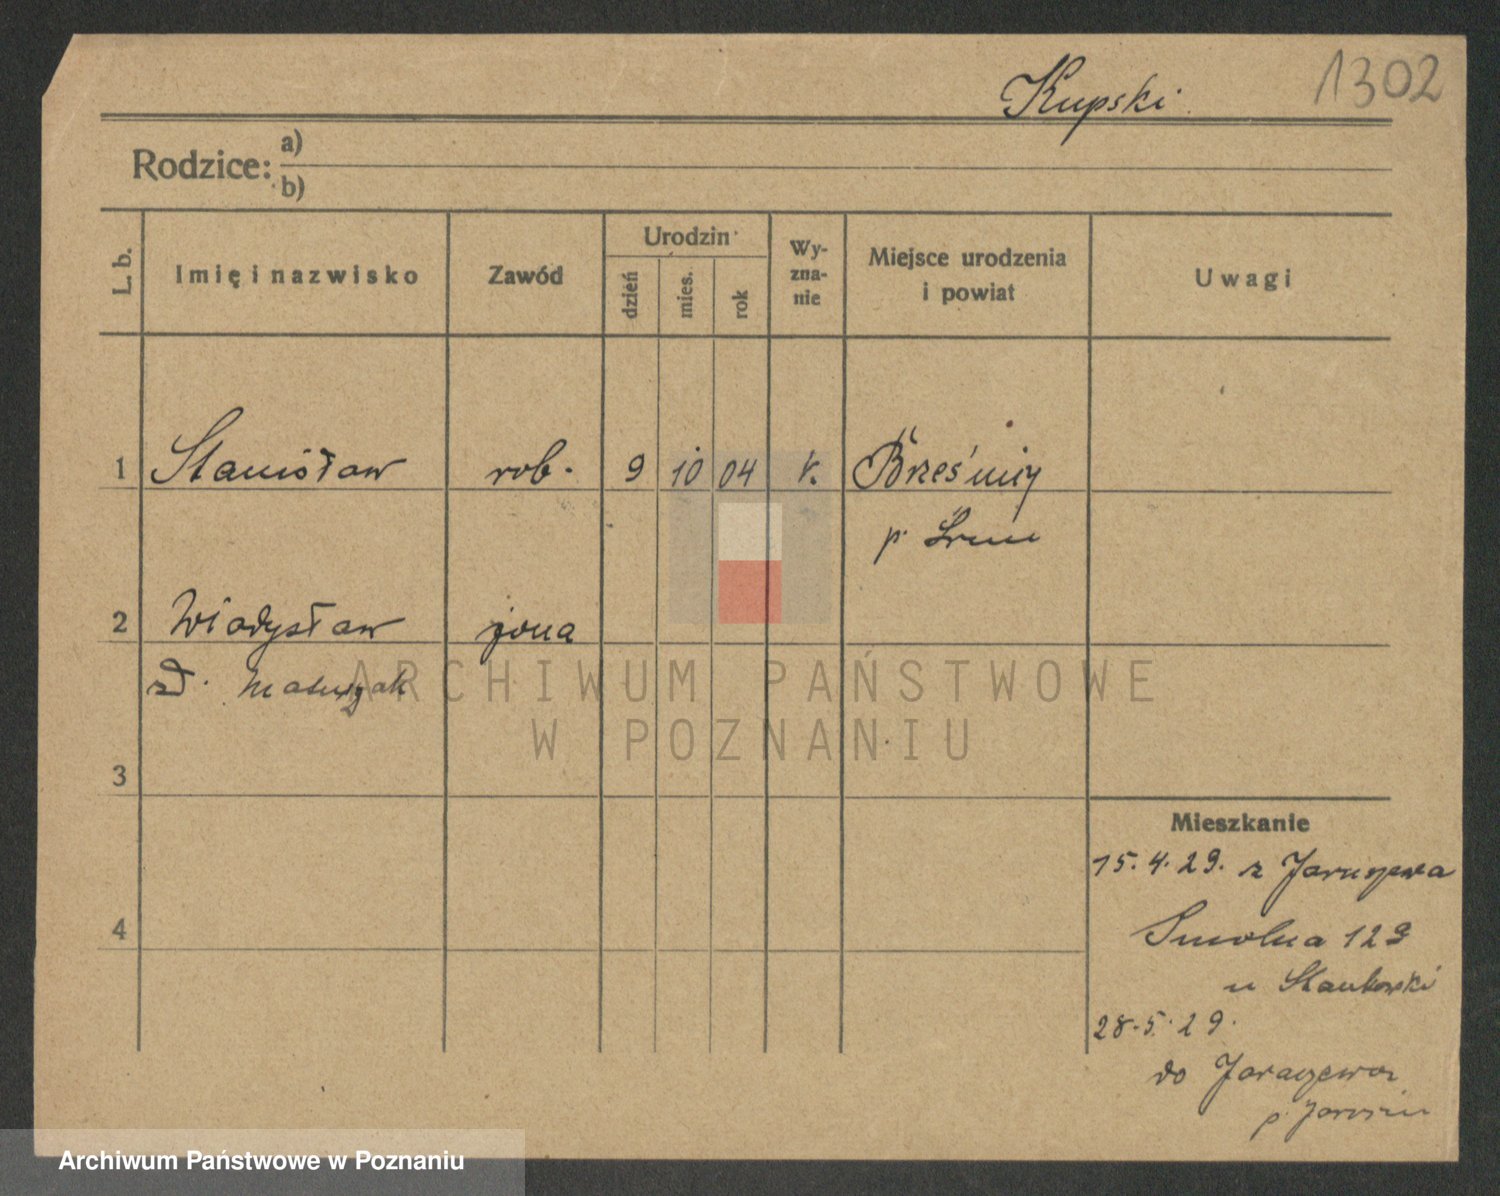 Kupski 1302
Rodzice: a)
b)
L. b. Imię i nazwisko Zawód Urodzin dzień mies. rok Wy-zna-nie Miejsce urodzenia i powiat Uwagi
1 Stanisław rob. 9 10 04 k.
p. Śrem
2 Władysław żona
zd. Matuszak
3
4
Mieszkanie
15.4.29. z Jaraczewa
Smolna
u
28.5.29.
do Jaraczewa
p. Jarocin
ARCHIWUM PAŃSTWOWE
W POZNANIU
Archiwum Państwowe w Poznaniu